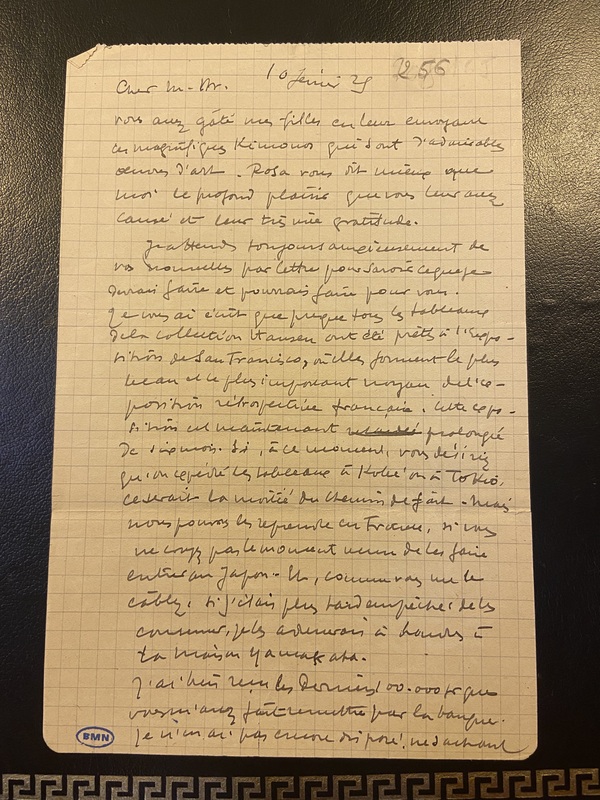 Cher M. Ar. 10 février 25 256
vous avez gâté mes filles en leur envoyant
ces magnifiques Kimonos qui sont d'admirables
œuvres d'art. Rosa vous dit mieux que
moi le profond plaisir que vous leur avez
causé et leur très vive gratitude.
J'attends toujours anxieusement de
vos nouvelles par lettre pour savoir ce que je
devrais faire et pourrais faire pour vous.
Je vous ai écrit que presque tous les tableaux
de la collection Hansen ont été prêtés à l'Expo-
sition de San Francisco, où elles forment le plus
beau et le plus important noyau de l'ex-
position rétrospective française. Cette expo-
sition est maintenant prolongée
de six mois. Si, à ce moment, vous désiriez
qu'on expédie les tableaux à Kobé ou à Tokio,
ce serait la moitié du chemin de fait. Mais
nous pouvons les reprendre en France, si vous
ne croyez pas le moment venu de les faire
entrer au Japon. Et, comme vous me le
câblez, si j'étais plus tard empêché de les
conserver, je les adresserais à Londres à
la maison Yamanaka.
J'ai bien reçu les derniers 100.000 fr que
vous m'avez fait remettre par la banque.
Je n'en ai pas encore disposé, ne sachant
BMN